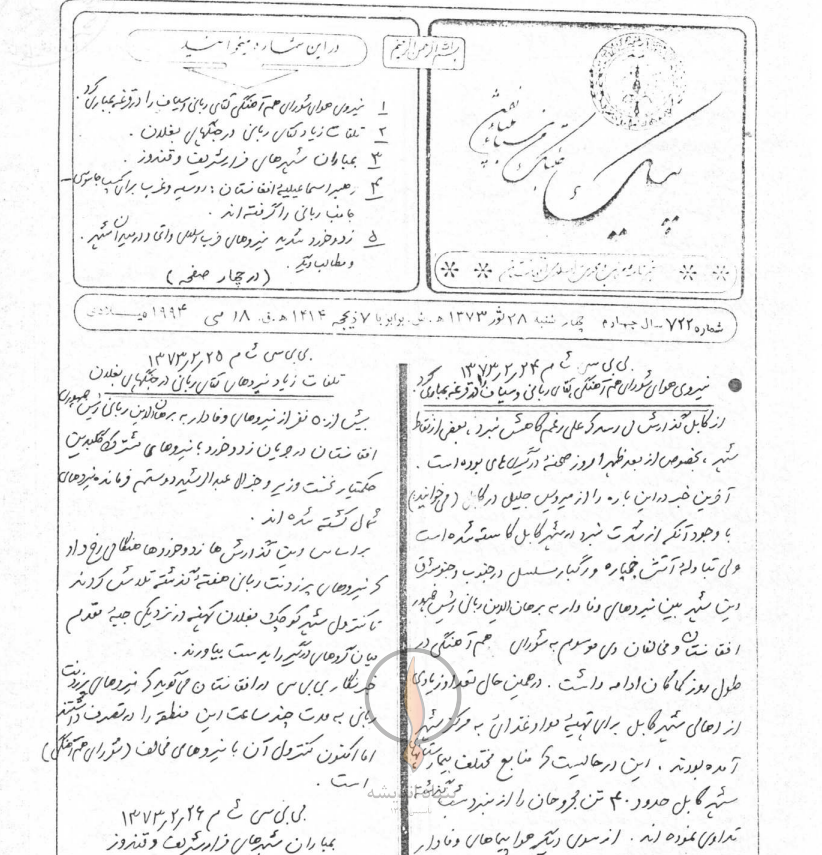 بسم الله الرحمن الرحیم
پیک
شماره ۷۲۲ سال چهارم چهار شنبه ۲۸ ثور ۱۳۷۳ ه.ش. برابر با ۷ ذیحجه ۱۴۱۴ ه.ق. ۱۸ می ۱۹۹۴ میلادی
در این شماره میخوانید
۱ نیروی هوای شورای هم آهنگی قوای ربانی و سیاف را در قرغه بمباری کرد.
۲ تلفات زیاد قوای ربانی در جنگهای بغلان.
۳ بمباران شهرهای مزارشریف و قندوز.
۴ رهبر اسماعیلیه افغانستان: روسیه و غرب برای
جانب ربانی را گرفته اند.
۵ زدوخورد شدید نیروهای حزب اسلامی و در میدان شهر.
و مطالب دیگر.
(در چهار صفحه)
بی بی سی ش م ۱۳۷۳٫۲٫۲۴
نیروی هوای شورای هم آهنگی قوای ربانی و سیاف را در قرغه بمباری کرد.
از کابل گزارش می رسد که علی رغم کاهش نبرد، بعضی از نقاط
شهر، بخصوص از بعد ظهر امروز صحنه درگیری های بوده است.
آخرین خبر در این باره را از میرویس جلیل در کابل (می خوانید)
با وجود آنکه از شدت نبرد در شهر کابل کاسته شده است
ولی تبادله آتش خمپاره و رگبار مسلسل در جنوب و جنوشرق
این شهر بین نیروهای وفادار به برهان الدین ربانی رئیس جمهور
افغانستان و مخالفان وی موسوم به شورای هم آهنگی در
طول روز کماکان ادامه داشت. در همین حال تعداد زیادی
از اهالی شهر کابل برای تهیه مواد غذائی به مرکز شهر
آمده بودند. این در حالیست که منابع مختلف بیمارستانهای
شهر کابل حدود ۴۰ تن مجروحان را از نبرد شب گذشته
تداوی نموده اند. از سوی دیگر هواپیماهای وفادار
بی بی سی ش م ۱۳۷۳٫۲٫۲۵
تلفات زیاد نیروهای قوای ربانی در جنگهای بغلان
بیش از ۵۰ نفر از نیروهای وفادار به برهان الدین ربانی رئیس جمهوری
افغانستان در جریان زدوخورد با نیروهای مشترک گلبدین
حکمتیار نخست وزیر و جنرال عبدالرشید دوستم فرمانده نیروهای
شمال کشته شده اند.
براساس این گزارش ها زدوخوردها هنگامی رخ داد
که نیروهای پرزدنت ربانی هفته گذشته تلاش کردند
تا کنترول شهر کوچک بغلان کهنه در نزدیکی جبهه مقدم
میان گروهای درگیر را بدست بیاورند.
خبرنگار بی بی سی در افغانستان می گوید که نیروهای پرزدنت
ربانی به مدت چند ساعت این منطقه را در تصرف داشتند
اما اکنون کنترول آن با نیروهای مخالف (شورای هم آهنگی)
است.
بی بی سی ش م ۱۳۷۳٫۲٫۲۶
بمباران شهرهای مزارشریف و قندوز